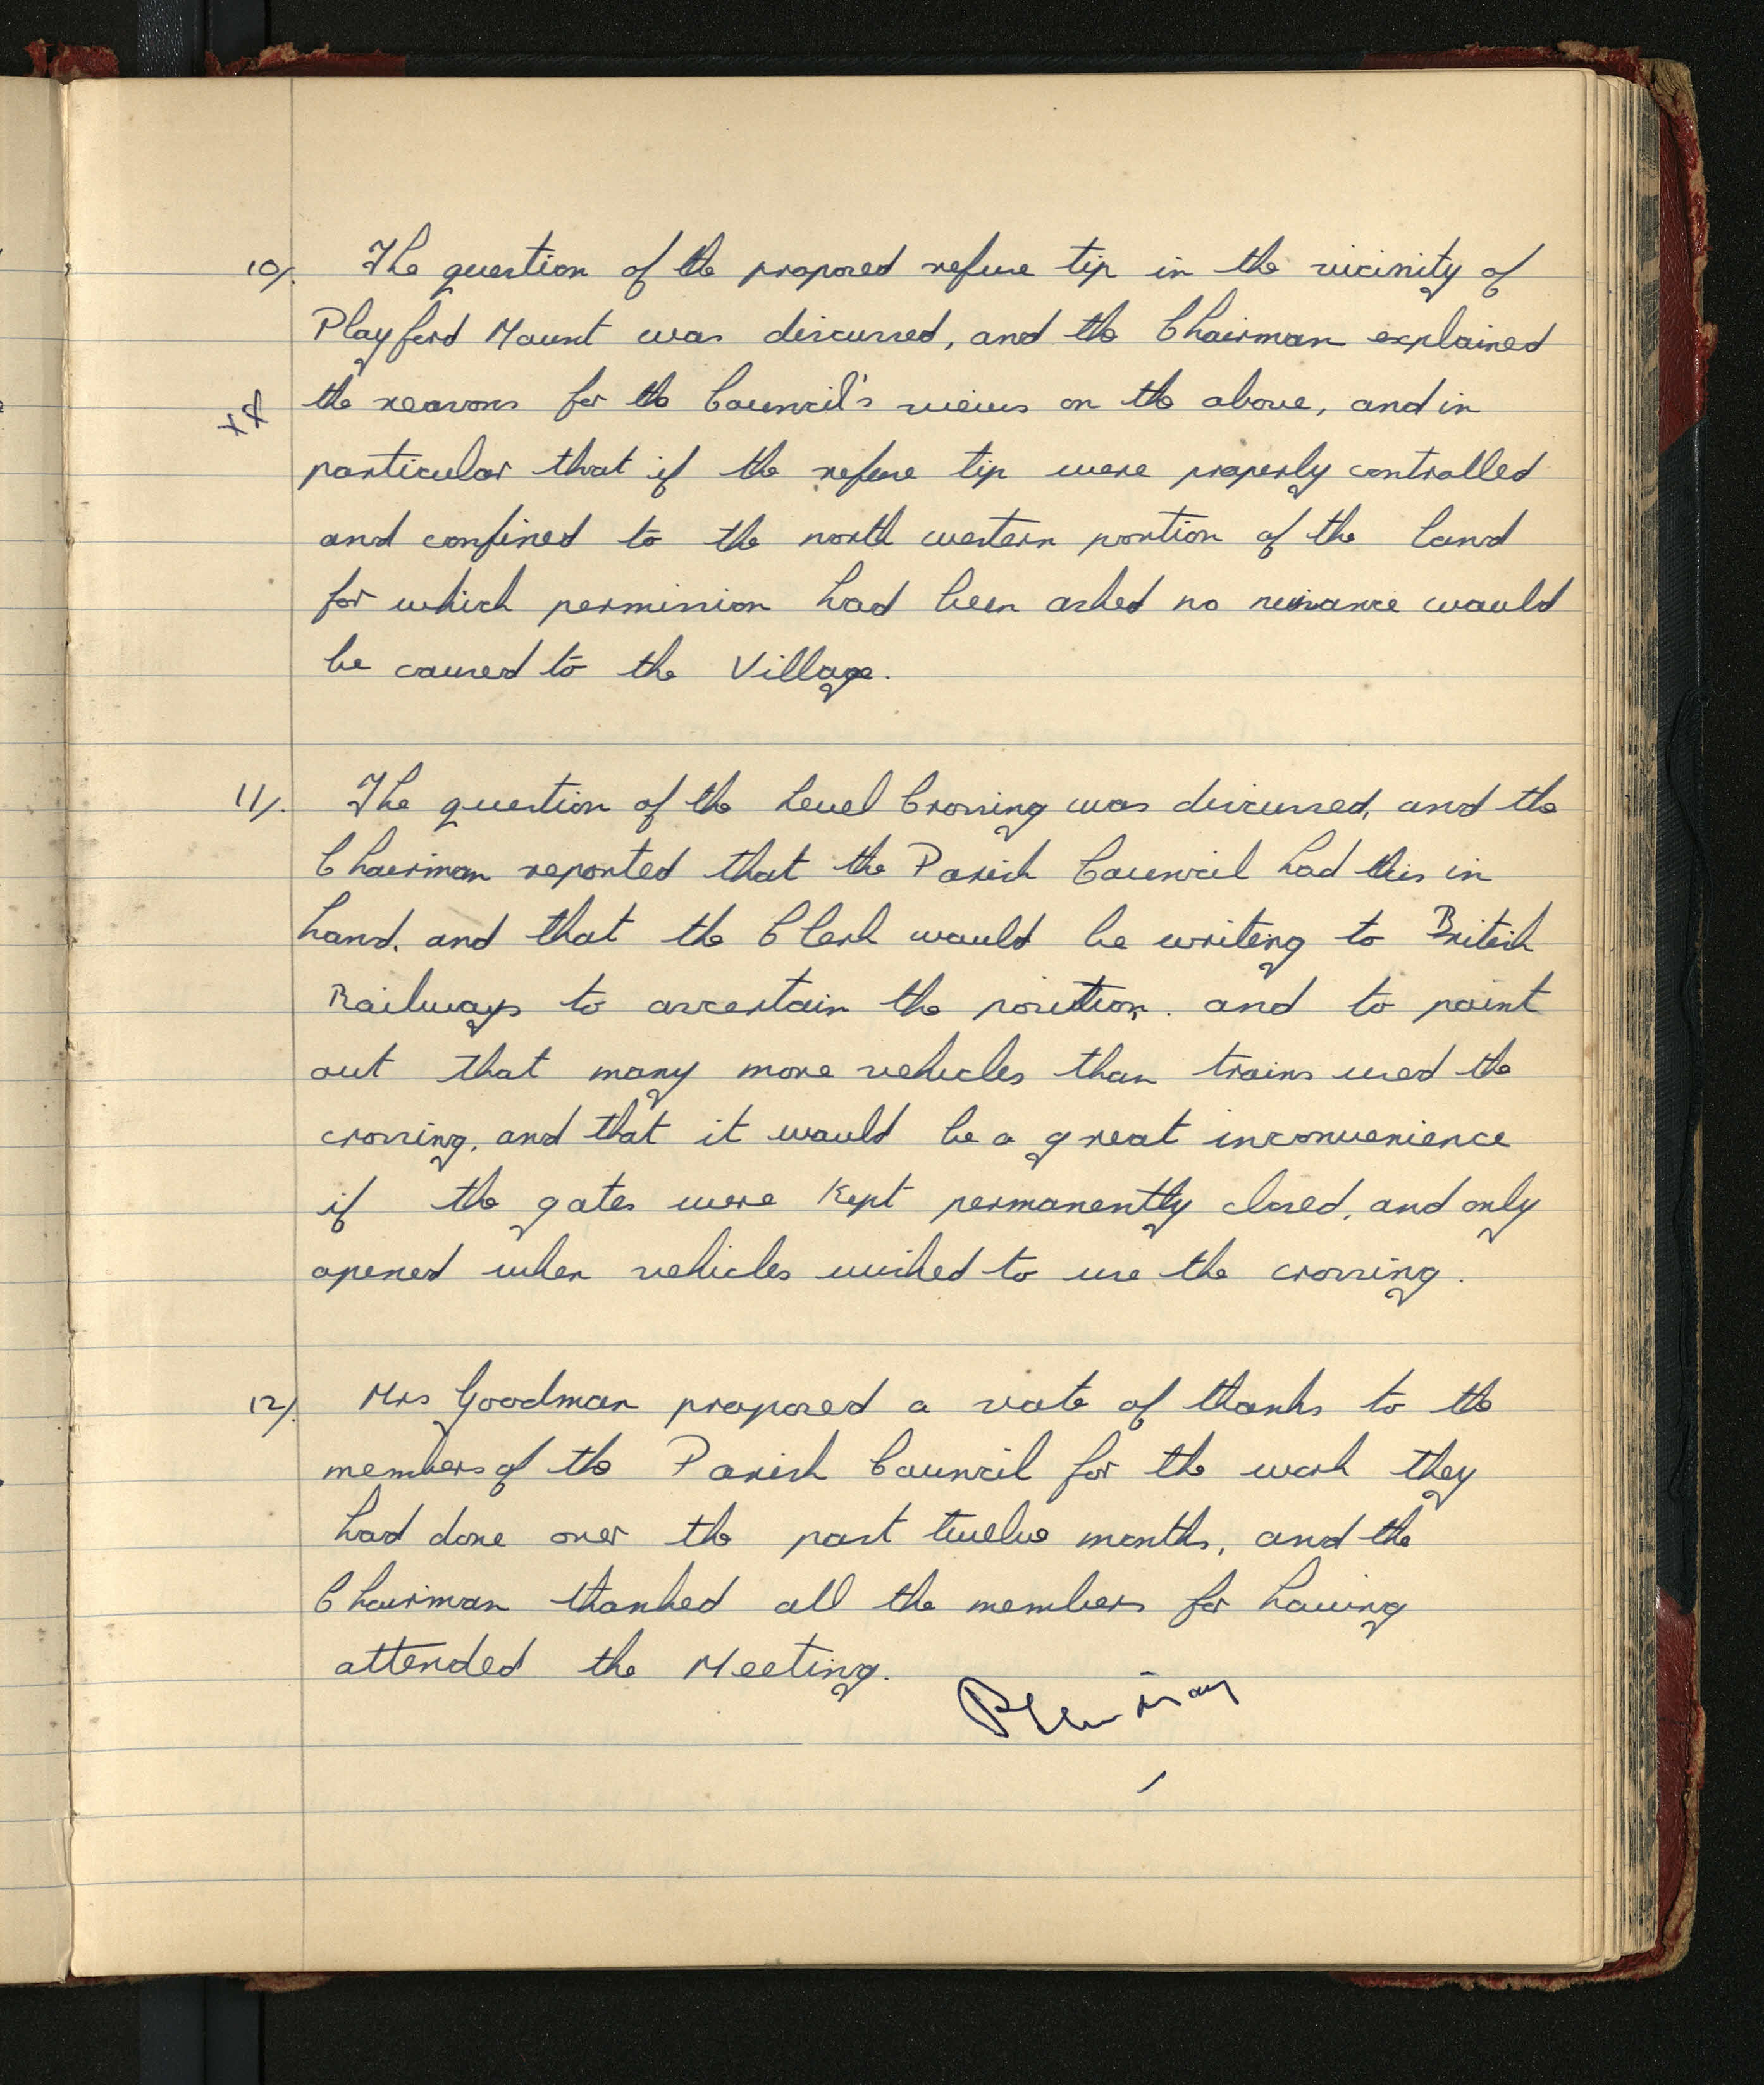 10). The question of the proposed refuse tip in the vicinity of
Playford Mount was discussed, and the Chairman explained
xx the reasons for the Council's views on the above, and in
particular that if the refuse tip were properly controlled
and confined to the north western portion of the land
for which permission had been asked no nuisance would
be caused to the Village.
11). The question of the Level Crossing was discussed, and the
Chairman reported that the Parish Council had this in
hand, and that the Clerk would be writing to British
Railways to ascertain the position. and to point
out that many more vehicles than trains used the
crossing, and that it would be a great inconvenience
if the gates were kept permanently closed, and only
opened when vehicles wished to use the crossing.
12). Mrs Goodman proposed a vote of thanks to the
members of the Parish Council for the work they
had done over the past twelve months, and the
Chairman thanked all the members for having
attended the Meeting.